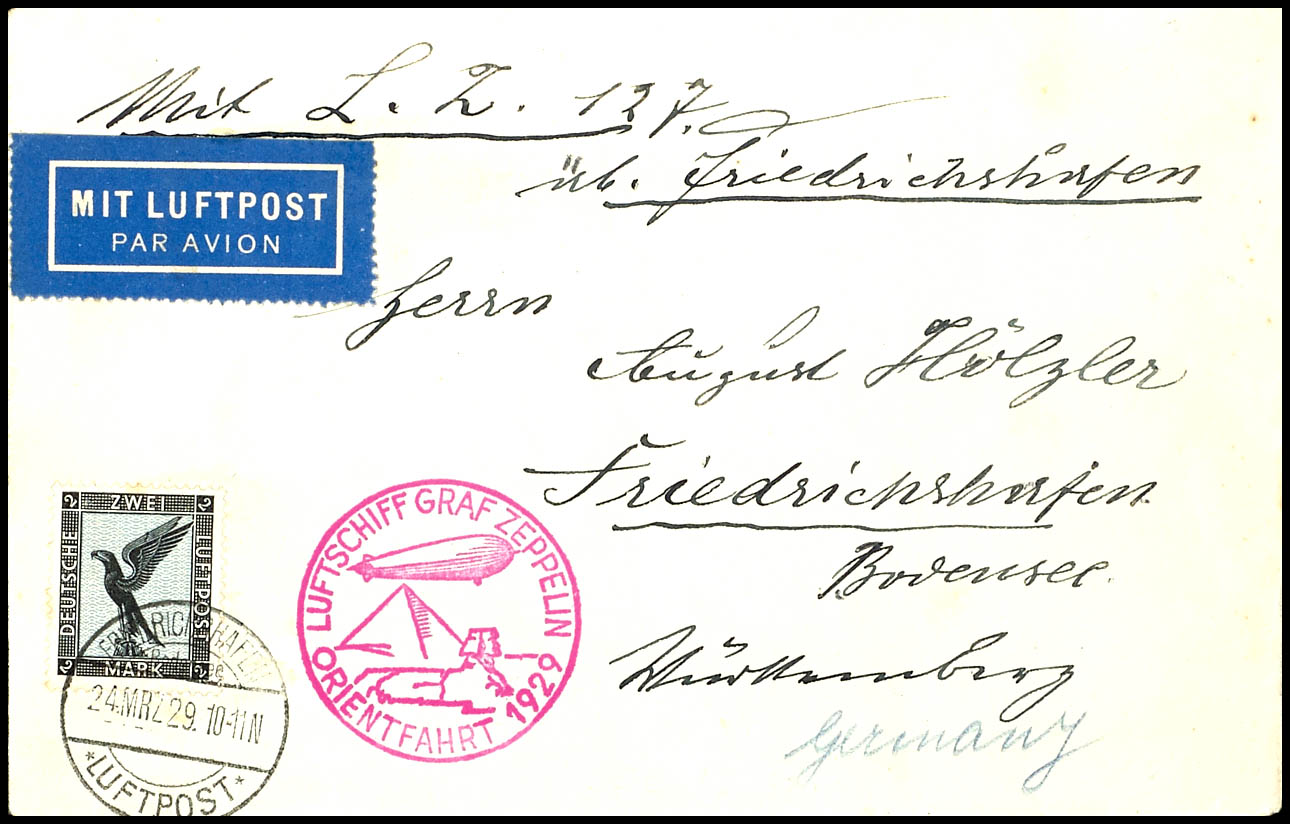 Mit L. Z. 127.
üb. Friedrichshafen
MIT LUFTPOST
PAR AVION
Herrn
August Hölzler
Friedrichshafen
Bodensee.
Württemberg
Germany
2 ZWEI 2
DEUTSCHE
LUFTPOST
2 MARK 2
LUFTSCHIFF GRAF ZEPPELIN
ORIENTFAHRT 1929
FRIEDRICHSHAFEN
24.MRZ.29. 10-11N
*LUFTPOST*